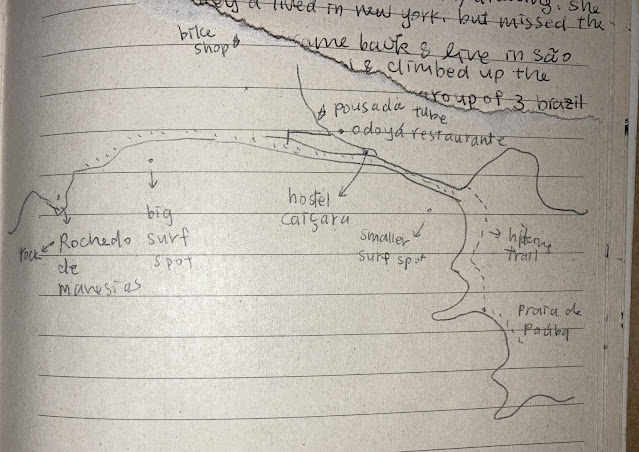 lived in new york. but missed the
came back & live in são
& climbed up the
group of 3 brazil
bike
shop
pousada tube
odoyá restaurante
hostel
caiçara
big
surf
spot
smaller
surf spot
rock
Rochedo
de
maresias
hiking
trail
Praia de
Paúba